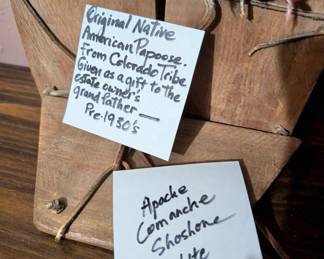 Original Native
American Papoose.
From Colorado Tribe
Given as a gift to the
estate owner's
grand father
Pre-1930's
Apache
Comanche
Shoshone
Ute